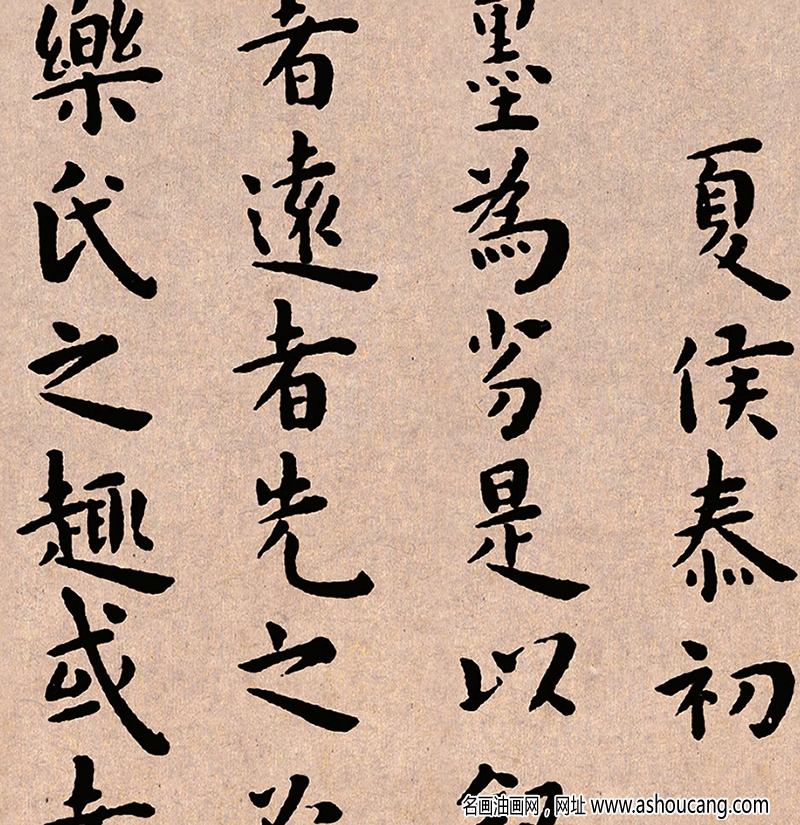 夏侯泰初
墨為劣是以
者遠者先之
樂氏之趣或
名画油画网，网址 www.ashoucang.com